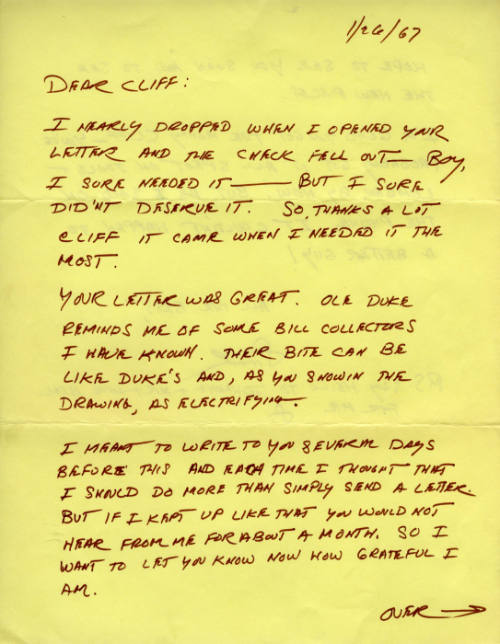 1/26/67
DEAR CLIFF:
I NEARLY DROPPED WHEN I OPENED YOUR
LETTER AND THE CHECK FELL OUT — BOY,
I SURE NEEDED IT — BUT I SURE
DID'NT DESERVE IT. SO, THANKS A LOT
CLIFF IT CAME WHEN I NEEDED IT THE
MOST.
YOUR LETTER WAS GREAT. OLE DUKE
REMINDS ME OF SOME BILL COLLECTORS
I HAVE KNOWN. THEIR BITE CAN BE
LIKE DUKE'S AND, AS YOU SHOW IN THE
DRAWING, AS ELECTRIFYING.
I MEANT TO WRITE TO YOU SEVERAL DAYS
BEFORE THIS AND EACH TIME I THOUGHT THAT
I SHOULD DO MORE THAN SIMPLY SEND A LETTER.
BUT IF I KEPT UP LIKE THAT YOU WOULD NOT
HEAR FROM ME FOR ABOUT A MONTH. SO I
WANT TO LET YOU KNOW NOW HOW GRATEFUL I
AM.
OVER →